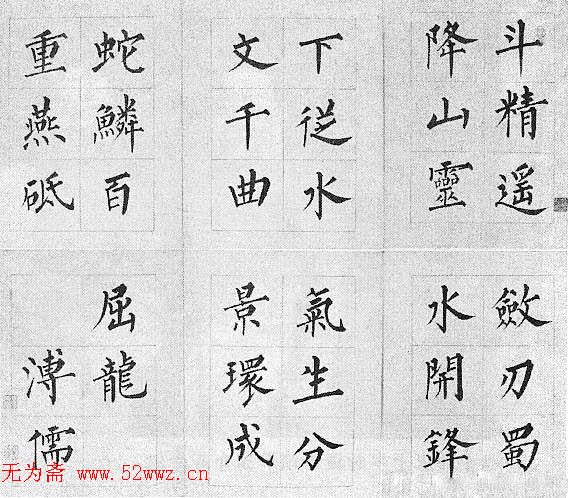 斗精遥
降山靈
下從水
文千曲
蛇鱗百
重燕砥
斂刃蜀
水開鋒
氣生分
景環成
屈龍
溥儒
无为斋 www.52wwz.cn